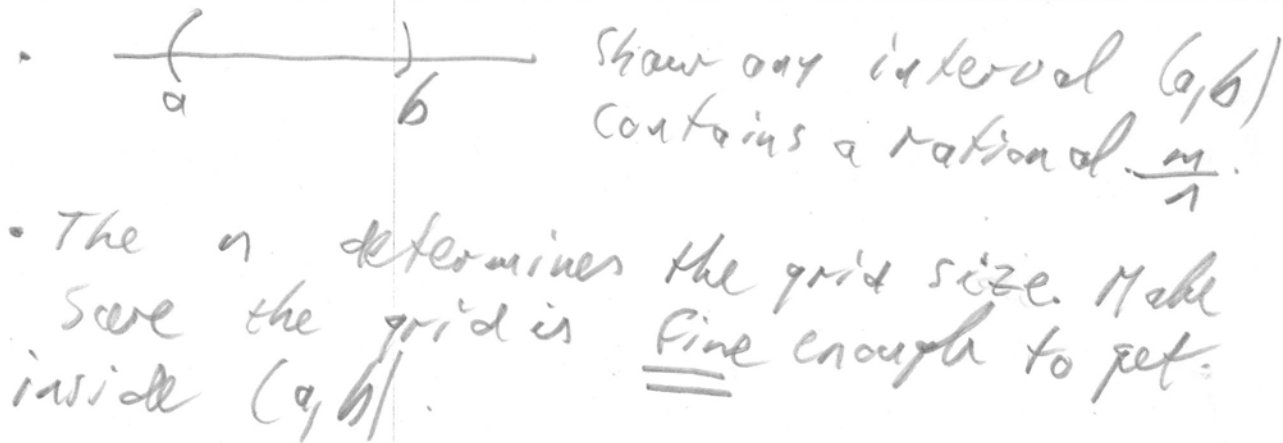 • a b Show any interval (a,b)
contains a rational m/n.
• The n determines the grid size. Make
sure the grid is fine enough to get
inside (a,b).